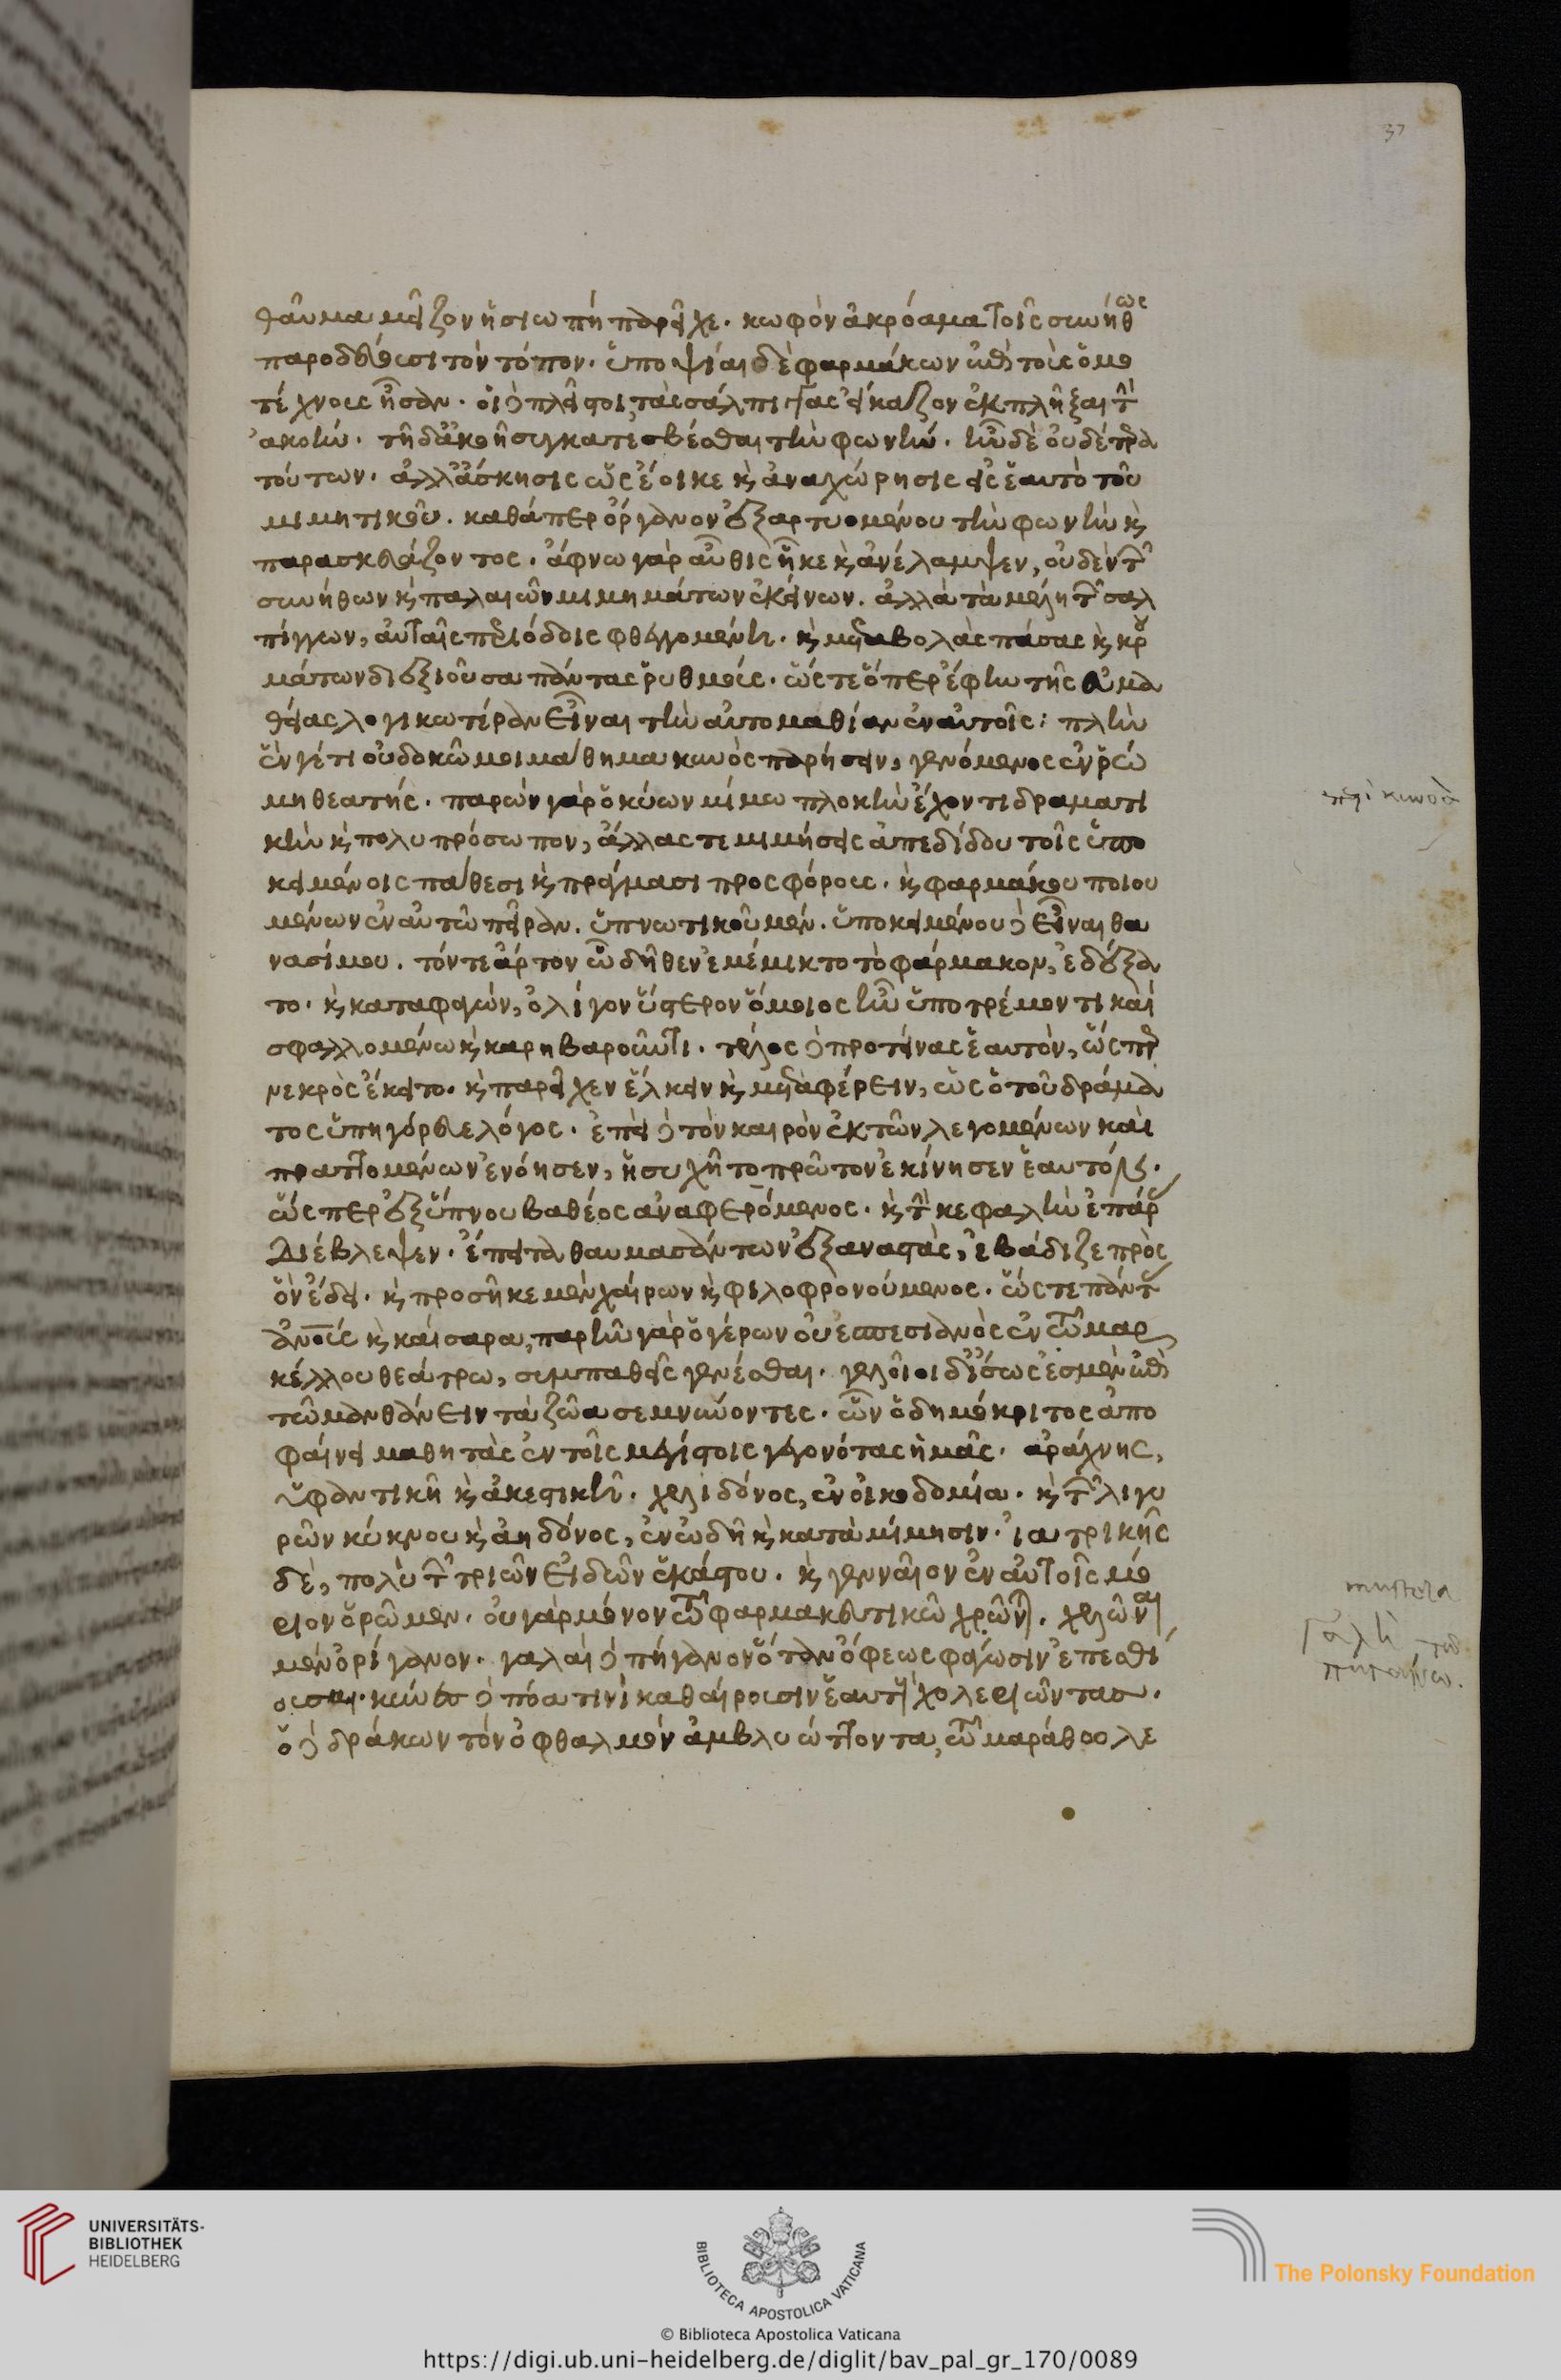 37
θαῦμα μεῖζον ἡ σιωπὴ παρεῖχε. κωφὸν ἀκρόαμα τοῖς συνήθως
παροδεύουσι τὸν τόπον. ὑποψίαι δὲ φαρμάκων ἐπὶ τοὺς ὁμο
τέχνους ἦσαν. οἱ δὲ πλεῖστοι, τὰς σάλπιγγας εἴκαζον ἐκπλῆξαι τὴν
ἀκοήν. τῇ δ' ἀκοῇ συγκατεσβέσθαι τὴν φωνήν. ἦν δὲ οὐδέτερα
τούτων. ἀλλ' ἄσκησις ὡς ἔοικε καὶ ἀναχώρησις εἰς ἑαυτὸ τοῦ
μιμητικοῦ. καθάπερ ὄργανον ἐξαρτυομένου τὴν φωνὴν καὶ
παρασκευάζοντος. ἄφνω γὰρ αὖθις ἧκε καὶ ἀνέλαμψεν, οὐδὲν τῶν
συνήθων καὶ παλαιῶν μιμημάτων ἐκείνων. ἀλλὰ τὰ μέλη τῶν σαλ
πίγγων, αὐταῖς περιόδοις φθεγγομένη. καὶ μεταβολὰς πάσας καὶ κρου
μάτων διεξιοῦσα πάντας ῥυθμούς. ὥστε ὅπερ ἔφην τῆς εὐμα
θείας λογικωτέραν εἶναι τὴν αὐτομαθίαν ἐν αὐτοῖς: πλὴν
ἕν γέ τι οὐ δοκῶ μοι μάθημα κυνὸς παρήσειν, γενόμενος ἐν ῥώ
μῃ θεατής. παρὼν γὰρ ὁ κύων μίμῳ πλοκὴν ἔχοντι δραματι
κὴν καὶ πολυπρόσωπον, ἄλλας τε μιμήσεις ἀπεδίδου τοῖς ὑπο
κειμένοις πάθεσι καὶ πράγμασι προσφόρους. καὶ φαρμάκου ποιου
μένων ἐν αὐτῷ πεῖραν. ὑπνωτικοῦ μέν. ὑποκειμένου δὲ εἶναι θα
νασίμου. τόν τε ἄρτον ᾧ δῆθεν ἐμέμικτο τὸ φάρμακον, ἐδέξα
το. καὶ καταφαγών, ὀλίγον ὕστερον ὅμοιος ἦν ὑποτρέμοντι καὶ
σφαλλομένῳ καὶ καρηβαροῦντι. τέλος δὲ προτείνας ἑαυτόν, ὥσπερ
νεκρὸς ἔκειτο. καὶ παρεῖχεν ἕλκειν καὶ μεταφέρειν, ὡς ὁ τοῦ δράμα
τος ὑπηγόρευε λόγος. ἐπεὶ δὲ τὸν καιρὸν ἐκ τῶν λεγομένων καὶ
πραττομένων ἐνόησεν, ἡσυχῆ τοπρῶτον ἐκίνησεν ἑαυτόν.
ὥσπερ ἐξ ὕπνου βαθέος ἀναφερόμενος. καὶ τὴν κεφαλὴν ἐπάρας
διέβλεψεν. ἔπειτα θαυμασάντων ἐξαναστάς, ἐβάδιζε πρὸς
ὃν ἔδει. καὶ προσῆκε μὲν χαίρων καὶ φιλοφρονούμενος. ὥστε πάντας
ἀνους καὶ καίσαρα, παρῆν γὰρ ὁ γέρων οὐεσπεσιανὸς ἐν τῷ μαρ
κέλλου θεάτρῳ, συμπαθεῖς γενέσθαι. γελοῖοι δ' ἴσως ἐσμὲν ἐπὶ
τῷ μανθάνειν τὰ ζῶα σεμνύνοντες. ὧν ὁ δημόκριτος ἀπο
φαίνει μαθητὰς ἐν τοῖς μεγίστοις γεγονότας ἡμᾶς. ἀράχνης,
ὑφαντικῇ καὶ ἀκεστικῇ. χελιδόνος, ἐν οἰκοδομίᾳ. καὶ τῶν λιγυ
ρῶν κύκνου καὶ ἀηδόνος, ἐν ᾠδῇ κατὰ μίμησιν. ἰατρικῆς
δέ, πολὺ τῶν τριῶν εἰδῶν ἑκάστου. καὶ γενναῖον ἐν αὐτοῖς μό
ριον ὁρῶμεν. οὐ γὰρ μόνον τῷ φαρμακευτικῷ χρῶνται. χελῶναι
μὲν ὀρίγανον. γαλαῖ δὲ πήγανον ὅταν ὄφεως φάγωσιν ἐπεσθί
ουσαι. κύνες δὲ πόᾳ τινὶ καθαίρουσιν ἑαυτοὺς χολεριῶντας.
ὁ δὲ δράκων τὸν ὀφθαλμὸν ἀμβλυώττοντα, τῷ μαράθρῳ λε
περὶ κυνὸς
mustela
γαλῆ
UNIVERSITÄTS-
BIBLIOTHEK
HEIDELBERG
BIBLIOTECA APOSTOLICA VATICANA
The Polonsky Foundation
© Biblioteca Apostolica Vaticana
https://digi.ub.uni-heidelberg.de/diglit/bav_pal_gr_170/0089